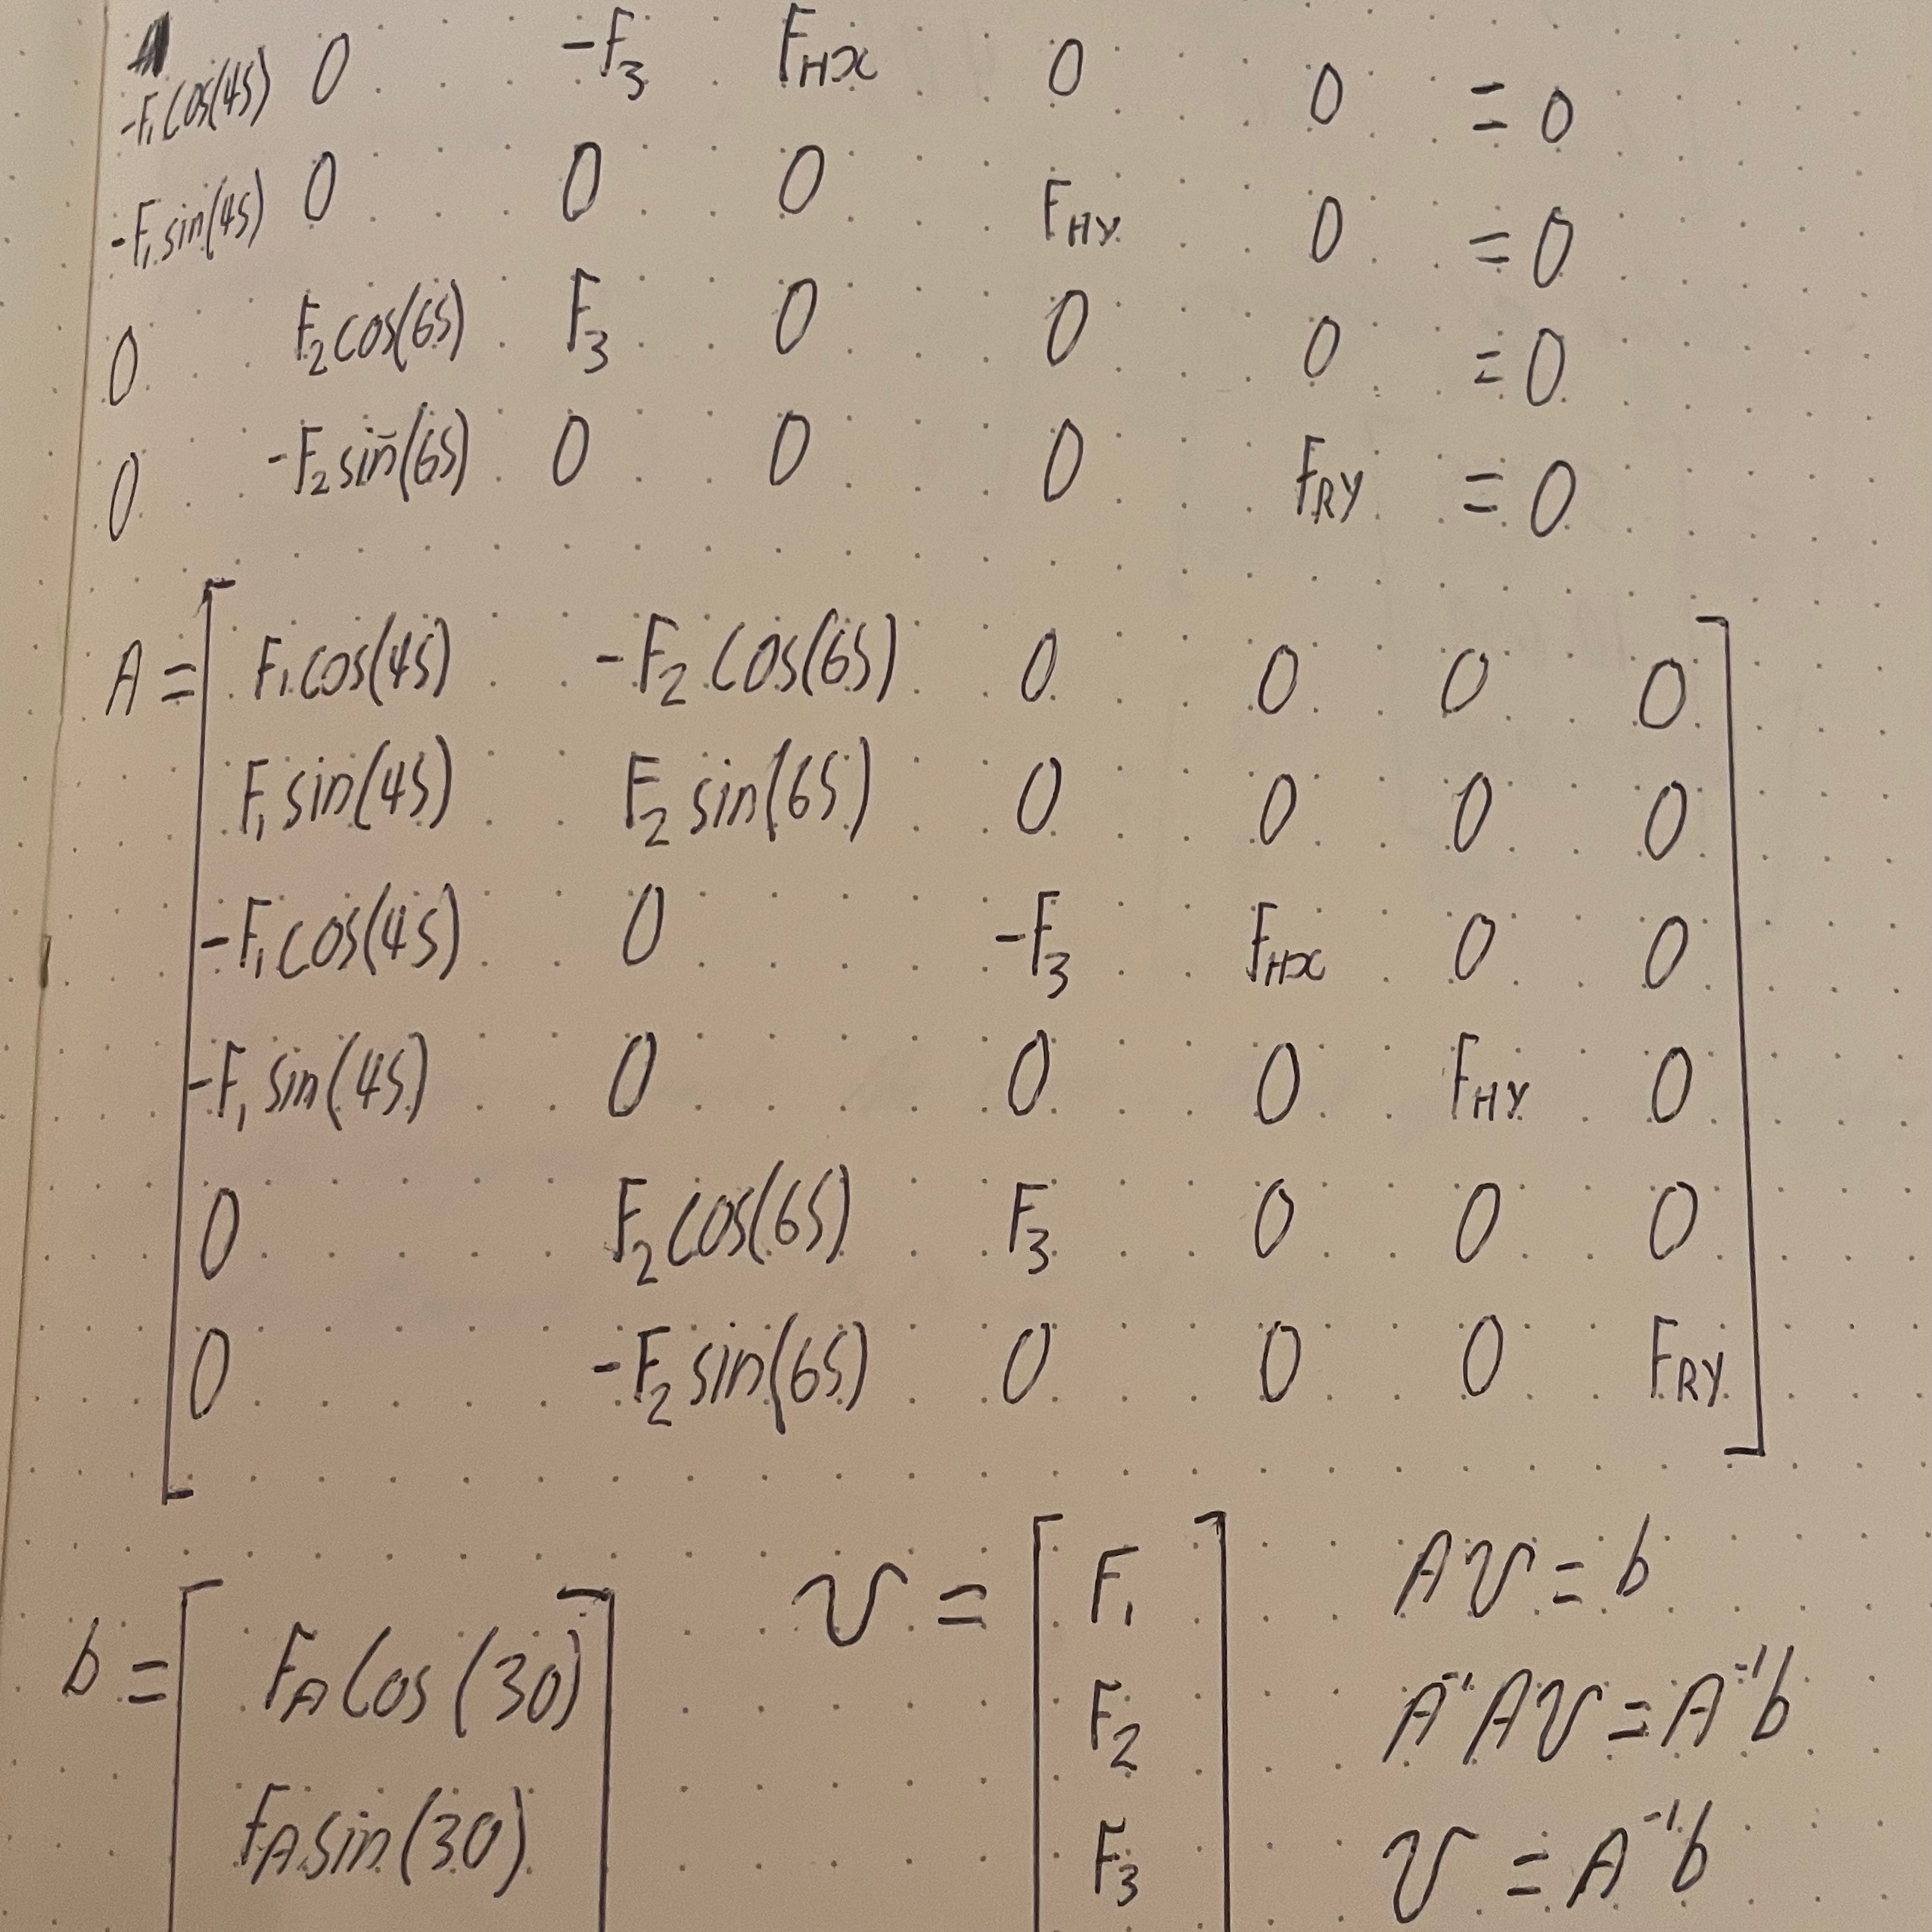 -F₁cos(45) 0 -F₃ F_HX 0 0 = 0
-F₁sin(45) 0 0 0 F_HY 0 = 0
0 F₂cos(65) F₃ 0 0 0 = 0
0 -F₂sin(65) 0 0 0 F_RY = 0
A = [ F₁cos(45) -F₂cos(65) 0 0 0 0
F₁sin(45) F₂sin(65) 0 0 0 0
-F₁cos(45) 0 -F₃ F_HX 0 0
-F₁sin(45) 0 0 0 F_HY 0
0 F₂cos(65) F₃ 0 0 0
0 -F₂sin(65) 0 0 0 F_RY ]
b = [ F_A cos(30)
F_A sin(30)
v = [ F₁
F₂
F₃
Av = b
A⁻¹Av = A⁻¹b
v = A⁻¹b